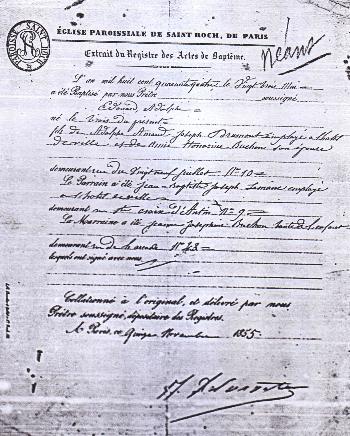 PAROISSE SAINT ROCH
SR
ÉGLISE PAROISSIALE DE SAINT ROCH, DE PARIS
néant
Extrait du Registre des Actes de Baptême.
L'an mil huit cent quarante quatre le Vingt trois Mai
a été Baptisé par nous Prêtre soussigné,
Edouard Adolphe
né le trois du présent
fils de Adolphe Amand Joseph Drumont employé à l'hôtel
de ville et de Anne Honorine Buchon son épouse
demeurant rue du Vingt neuf Juillet N° 10
Le Parrain a été Jean Baptiste Joseph employé
à l'hôtel de ville
demeurant croix d'Antin N° 9
La Marraine a été Josephine Buchon tante de l'enfant
demeurant rue de N° 43
lesquels ont signé avec nous
Collationné à l'original, et délivré par nous
Prêtre soussigné, dépositaire des Registres.
A Paris, ce Quinze Novembre 1855